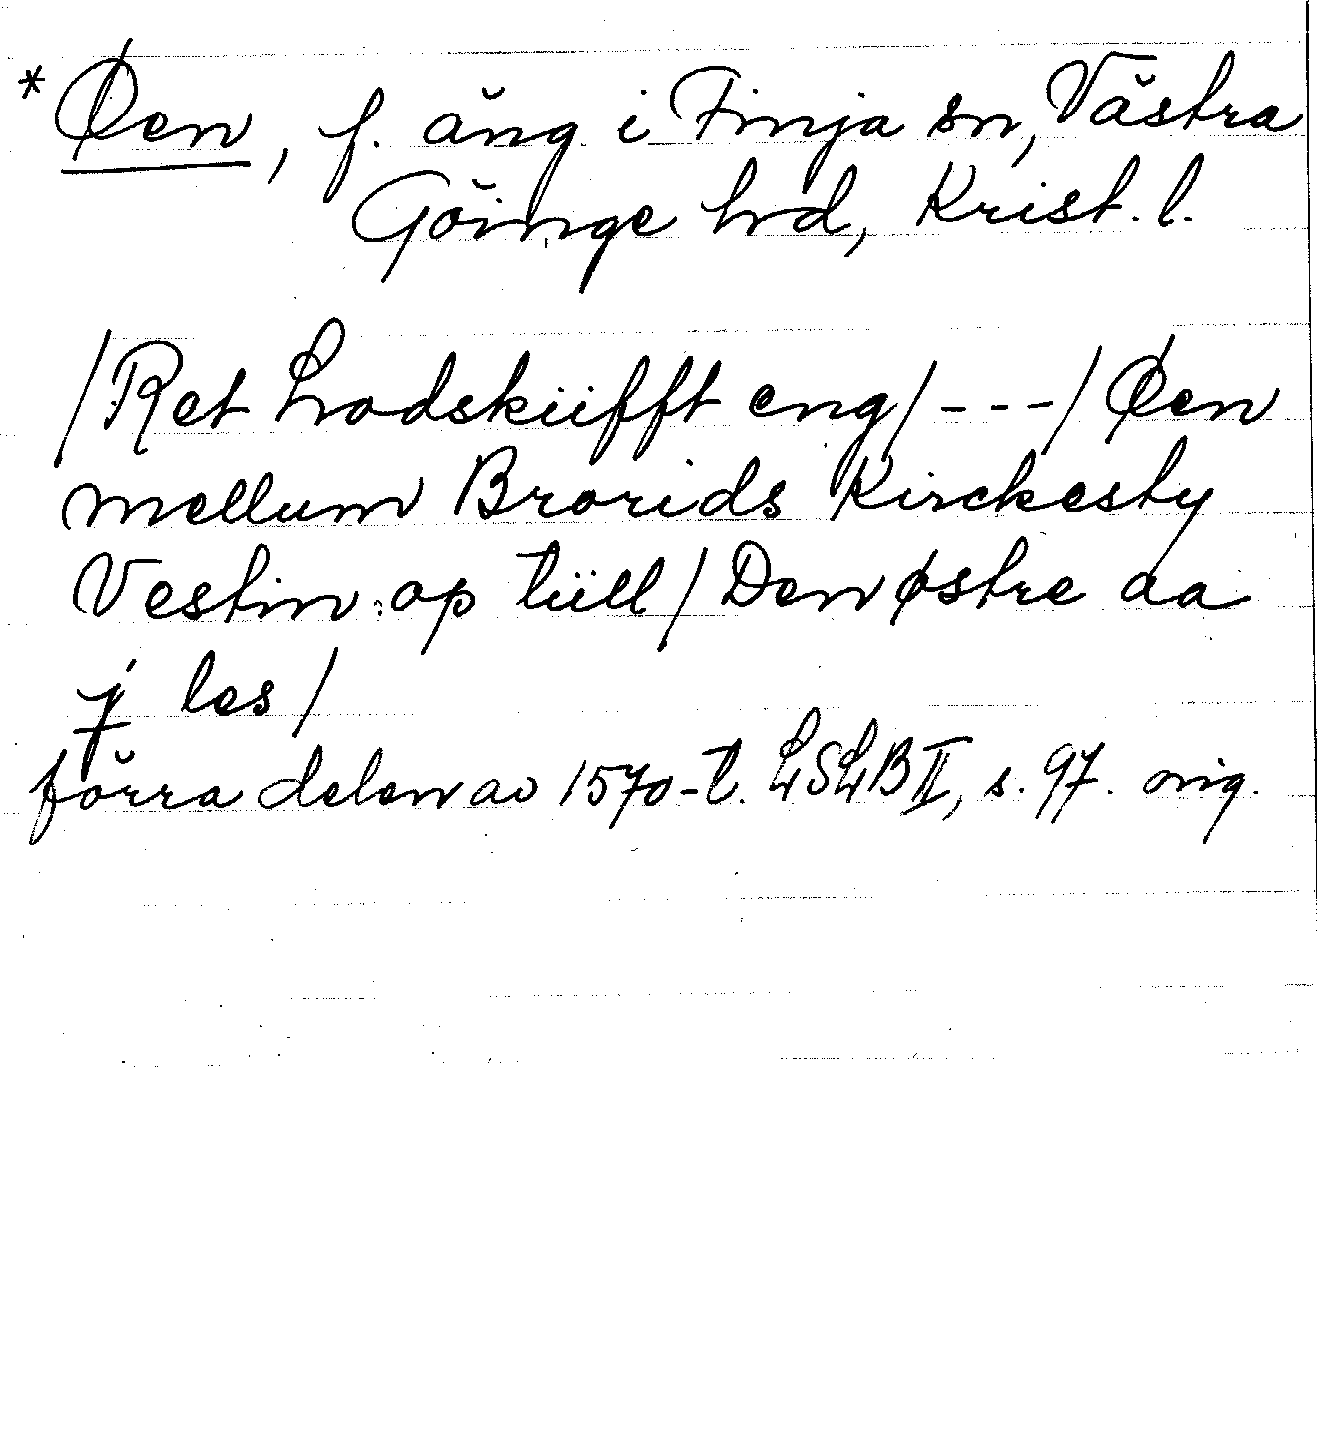 * Øen, f. äng i Finja sn, Västra
Göinge hrd, Krist. l.
/Ret Lodskiifft eng/---/Øen
mellum Brorids Kirckesty
Vestin op tiill/Den østre aa
j les/
förra delen av 1570-t. LSLB II, s. 97. orig.